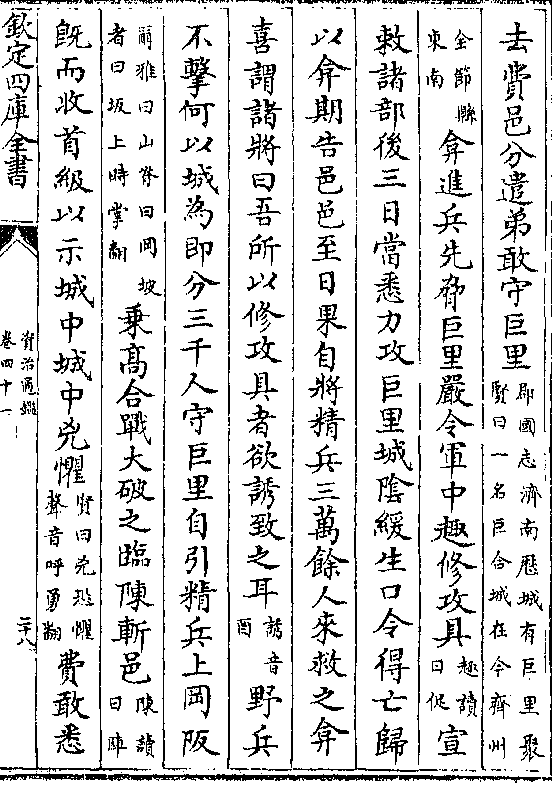 去費邑分遣弟敢守巨里郡國志濟南歷城有巨里聚賢曰一名巨合城在今齊州
全節縣東南弇進兵先脅巨里嚴令軍中趣修攻具趣讀曰促宣
敕諸部後三日當悉力攻巨里城陰緩生口令得亡歸
以弇期告邑邑至日果自將精兵三萬餘人來救之弇
喜謂諸將曰吾所以修攻具者欲誘致之耳誘音酉野兵
不擊何以城為即分三千人守巨里自引精兵上岡阪
爾雅曰山脊曰岡坡者曰坂上時掌翻乗髙合戰大破之臨陳斬邑陳讀曰陣
既而收首級以示城中城中兇懼賢曰兇恐懼聲音呼勇翻費敢悉
欽定四庫全書
資治通鑑
卷四十一
二十八